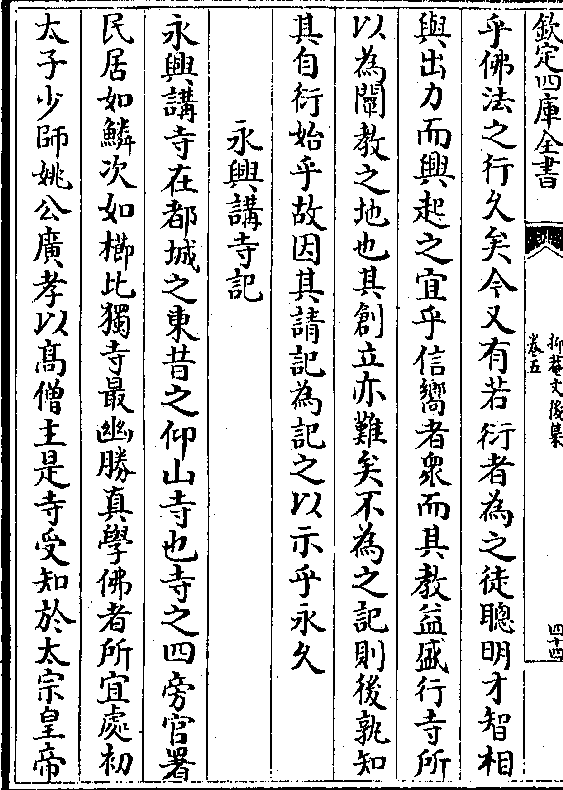 欽定四庫全書
抑菴文後集
卷五
四十四
乎佛法之行久矣今又有若衍者為之徒聰明才智相
與出力而興起之宜乎信嚮者衆而其教益盛行寺所
以為闡教之地也其創立亦難矣不為之記則後孰知
其自衍始乎故因其請記為記之以示乎永久
永興講寺記
永興講寺在都城之東昔之仰山寺也寺之四旁官署
民居如鱗次如櫛比獨寺最幽勝真學佛者所宜處初
太子少師姚公廣孝以髙僧主是寺受知於太宗皇帝